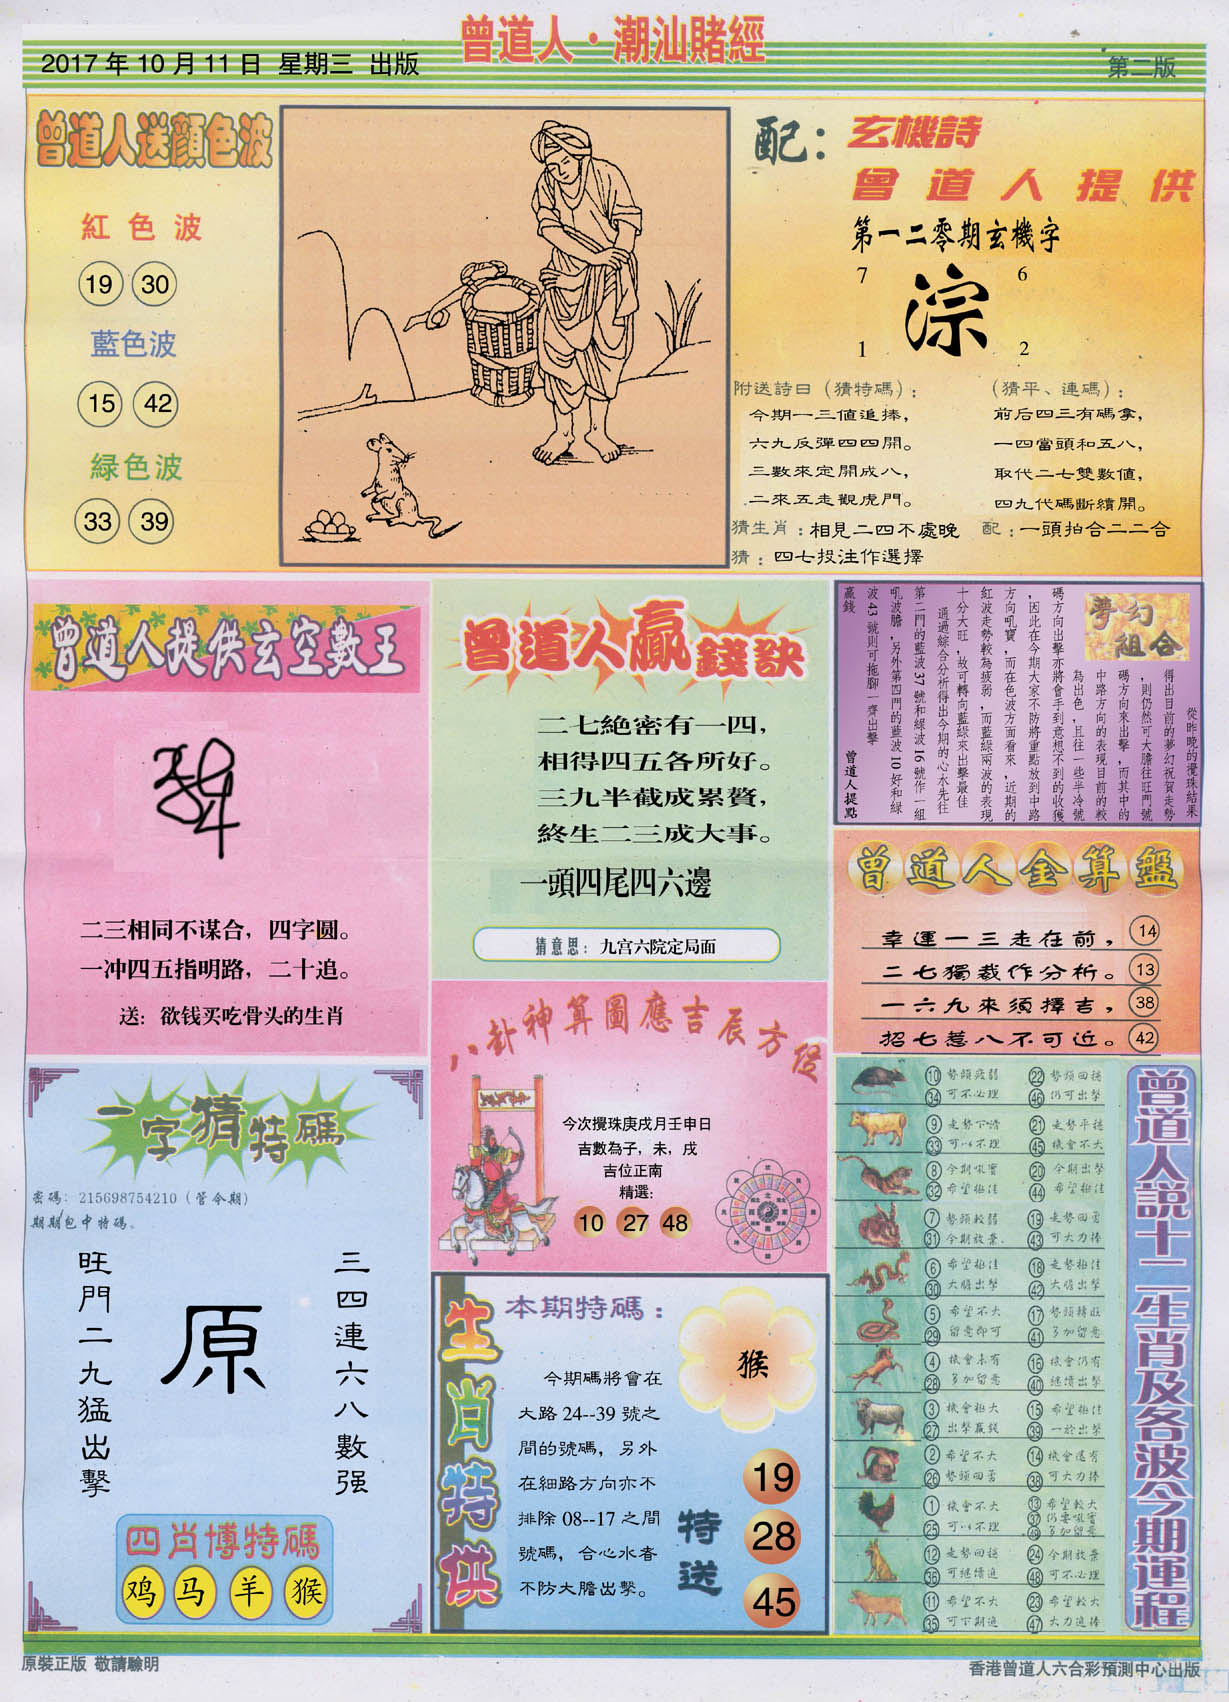 曾道人·潮汕賭經
2017年10月11日 星期三 出版
第二版
曾道人送顏色波
紅色波
19 30
藍色波
15 42
緑色波
33 39
配：玄機詩
曾道人提供
第一二零期玄機字
7 6
淙
1 2
附送詩曰（猜特碼）：
今期一三値追捧，
六九反彈四四開。
三數來定開成八，
二來五走觀虎門。
（猜平、連碼）：
前后四三有碼拿，
一四當頭和五八，
取代二七雙數値，
四九代碼斷續開。
猜生肖：相見二四不處晚
配：一頭拍合二二合
猜：四七投注作選擇
曾道人提供玄空數王
二三相同不谋合，四字圆。
一冲四五指明路，二十追。
送：欲钱买吃骨头的生肖
曾道人贏錢訣
二七絶密有一四，
相得四五各所好。
三九半截成累贅，
終生二三成大事。
一頭四尾四六邊
猜意思：九宫六院定局面
夢幻
組合
從昨晚的攪珠結果
得出目前的夢幻祝賀走勢
，則仍然可大膽往旺門號
碼方向來出擊，而其中的
中路方向的表現目前的較
為出色，且往一些半冷號
碼方向出擊亦將會手到意想不到的收獲
，因此在今期大家不防將重點放到中路
方向吼寶，而在色波方面看來，近期的
紅波走勢較為疲弱，而藍綠兩波的表現
十分大旺，故可轉向藍綠來出擊最佳
通過綜合分析得出今期的心水先往
第二門的藍波37號和綠波16號作一組
吼波膽，另外第四門的藍波10好和綠
波43號則可拖腳一齊出擊
贏錢 曾道人提點
曾道人金算盤
幸運一三走在前， 14
二七獨裁作分析。 13
一六九來須擇吉， 38
招七惹八不可近。 42
八卦神算圖應吉辰方位
今次攪珠庚戌月壬申日
吉數為子，未，戌
吉位正南
精選：
10 27 48
一字猜特碼
密碼：215698754210（管令期）
期期包中特碼。
三四連六八數强
原
旺門二九猛出擊
四肖博特碼
鸡 马 羊 猴
生肖特供
本期特碼：
猴
今期碼將會在
大路24--39號之
間的號碼，另外
在細路方向亦不
排除08--17之間
號碼，合心水者
不防大膽出擊。
特送
19
28
45
曾道人説十二生肖及各波今期運程
10 勢頭疲弱 22 勢頭回穩
34 可不必理 46 仍可出擊
9 走勢下滑 21 走勢平穩
33 可以不理 45 機會不大
8 今期吼寶 20 今期出擊
32 希望極佳 44 希望極佳
7 勢頭較弱 19 走勢回勇
31 今期放棄 43 可大力捧
6 希望極佳 18 走勢極佳
30 大膽出擊 42 大膽出擊
5 希望不大 17 勢頭轉旺
29 留意即可 41 多加留意
4 機會未有 16 機會仍有
28 多加留意 40 繼續出擊
3 機會極大 15 希望極佳
27 出擊贏錢 39 一於出擊
2 希望不大 14 機會還有
26 勢頭回勇 38 可大力捧
1 機會不大 13 希望較大
25 可以不理 37 仍要吼寶
49 多加留意
12 走勢回穩 24 今期放棄
36 可繼續追 48 可不必理
11 希望不大 23 希望較大
35 可下期追 47 大力追捧
原裝正版 敬請驗明
香港曾道人六合彩預測中心出版